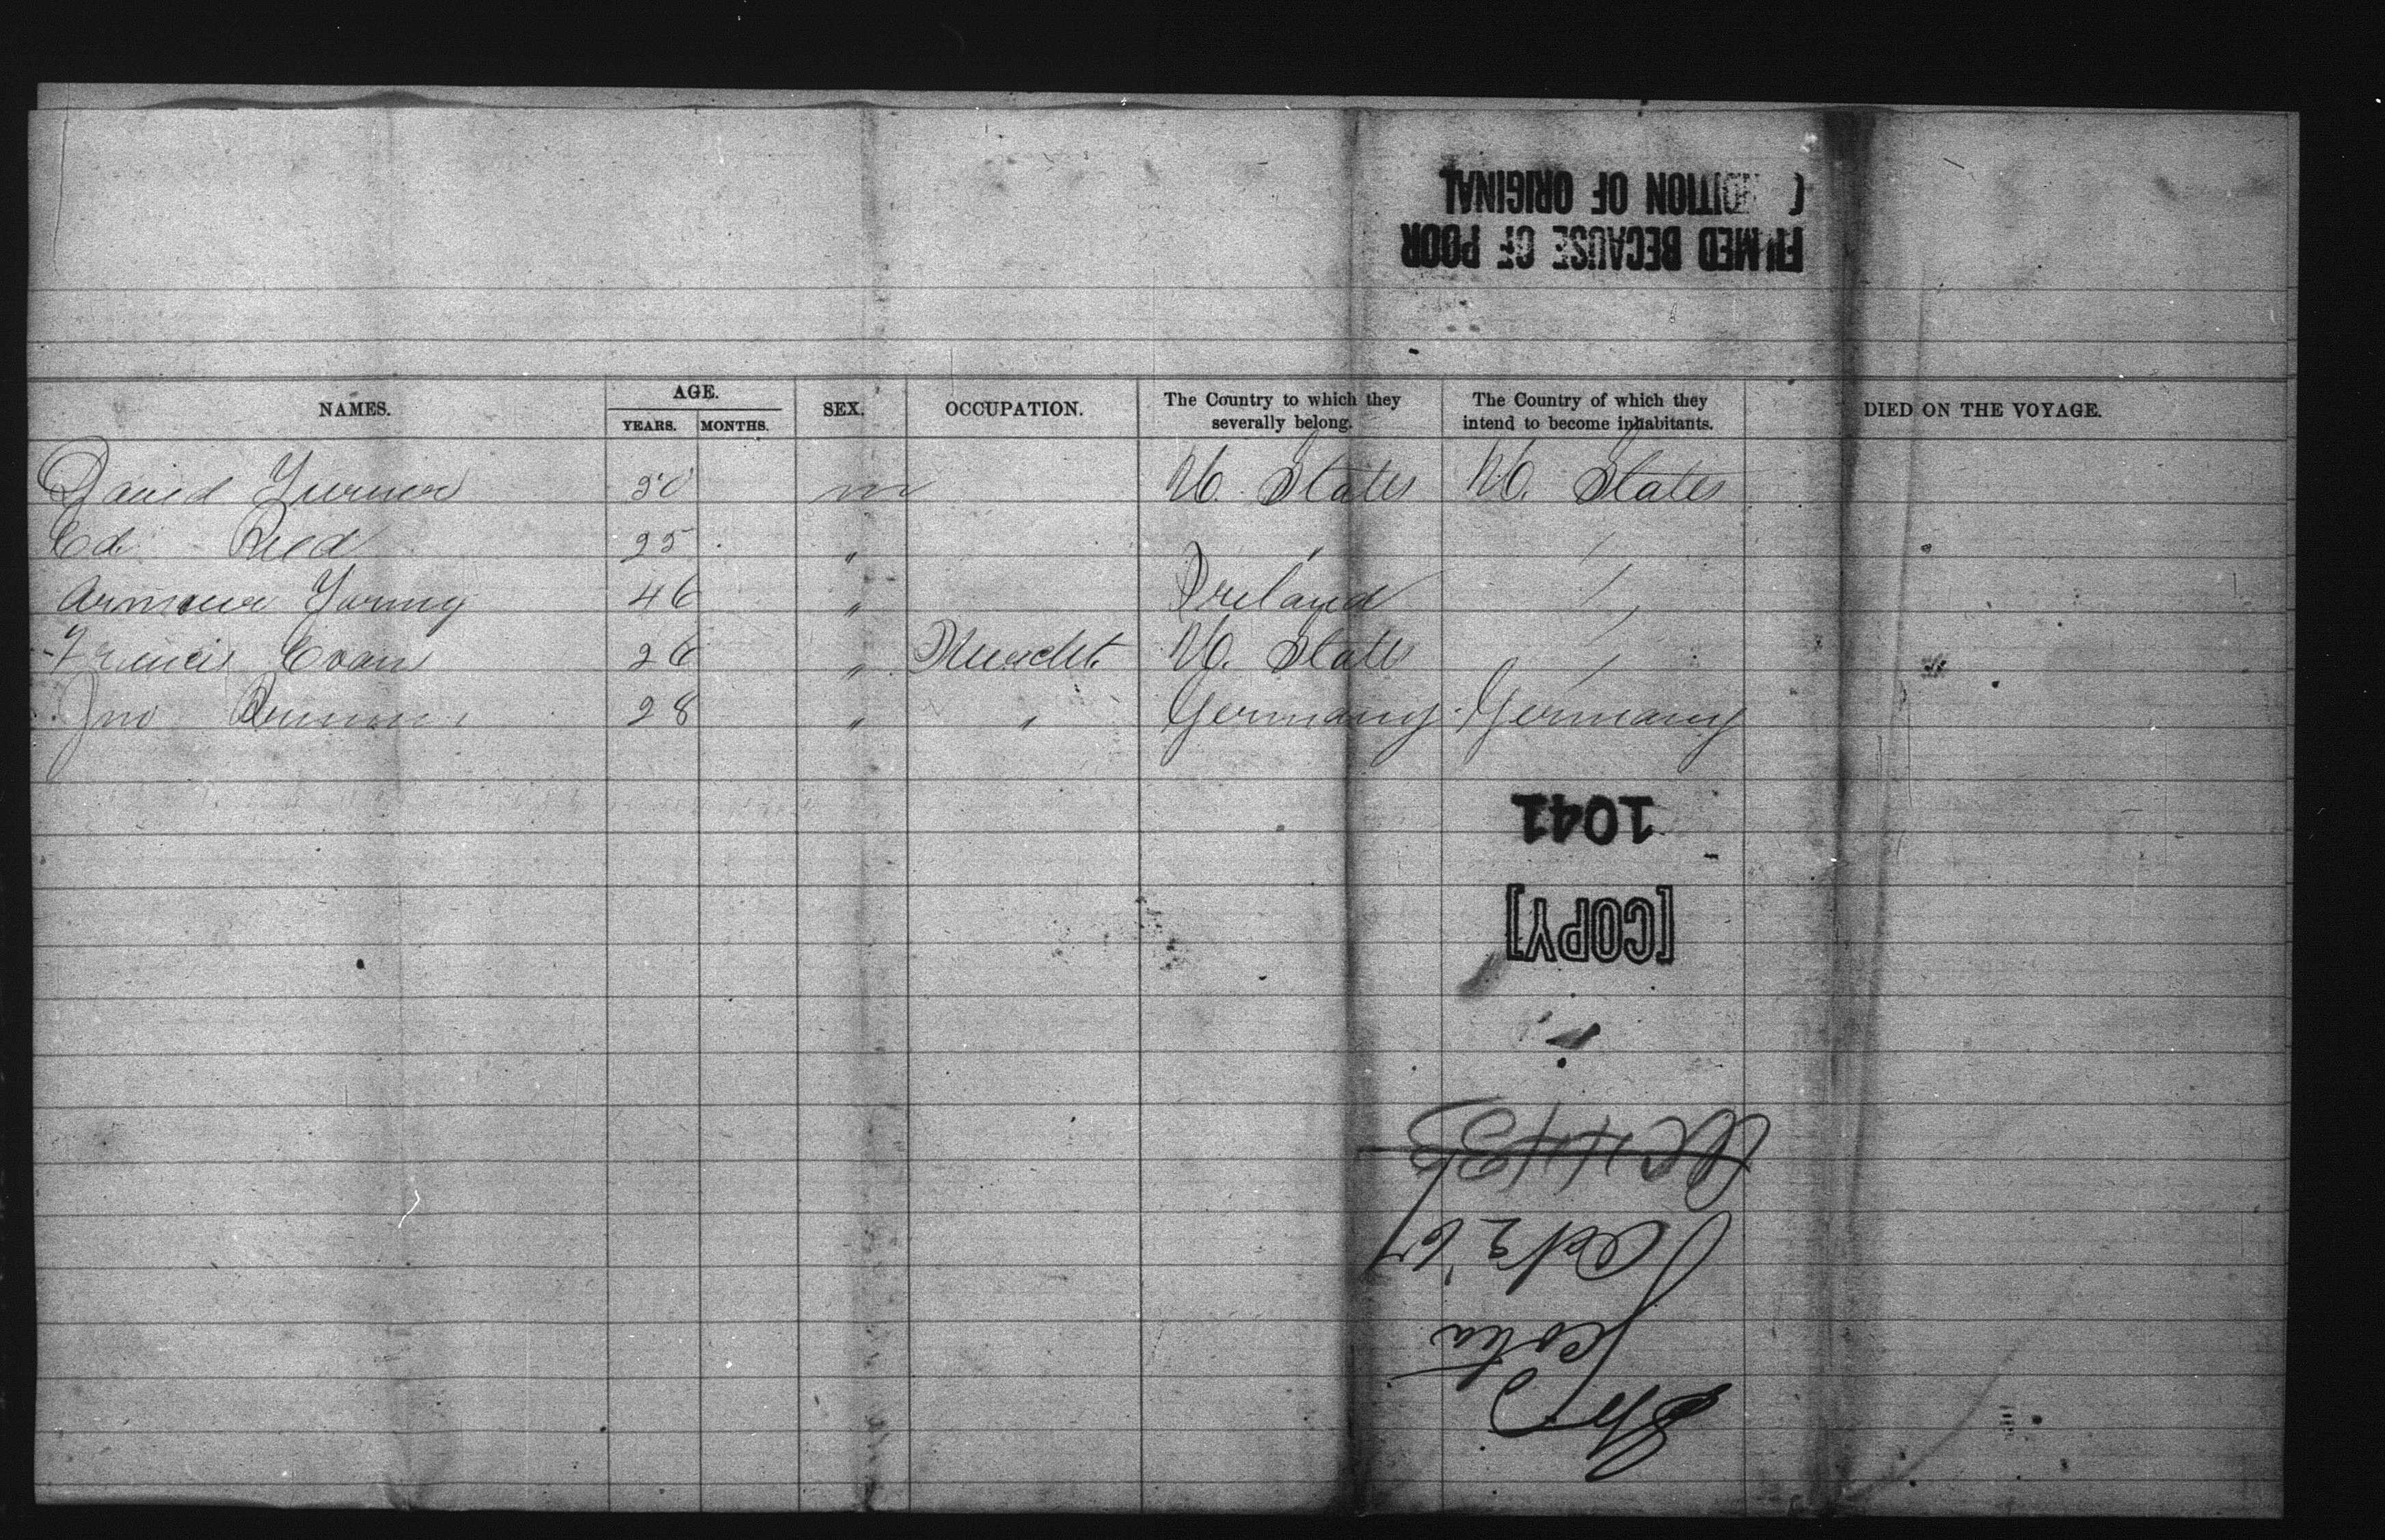 FILMED BECAUSE OF POOR
CONDITION OF ORIGINAL
NAMES. AGE. YEARS. MONTHS. SEX. OCCUPATION. The Country to which they severally belong. The Country of which they intend to become inhabitants. DIED ON THE VOYAGE.
David Turner 50 m U. States U. States
Ed. Reed 25 " " "
Armour Young 46 " Ireland "
Francis Evans 26 " U. States "
Jno 28 " " Germany Germany
1041
[COPY]
Oct 2 '67
Scotia
Ship